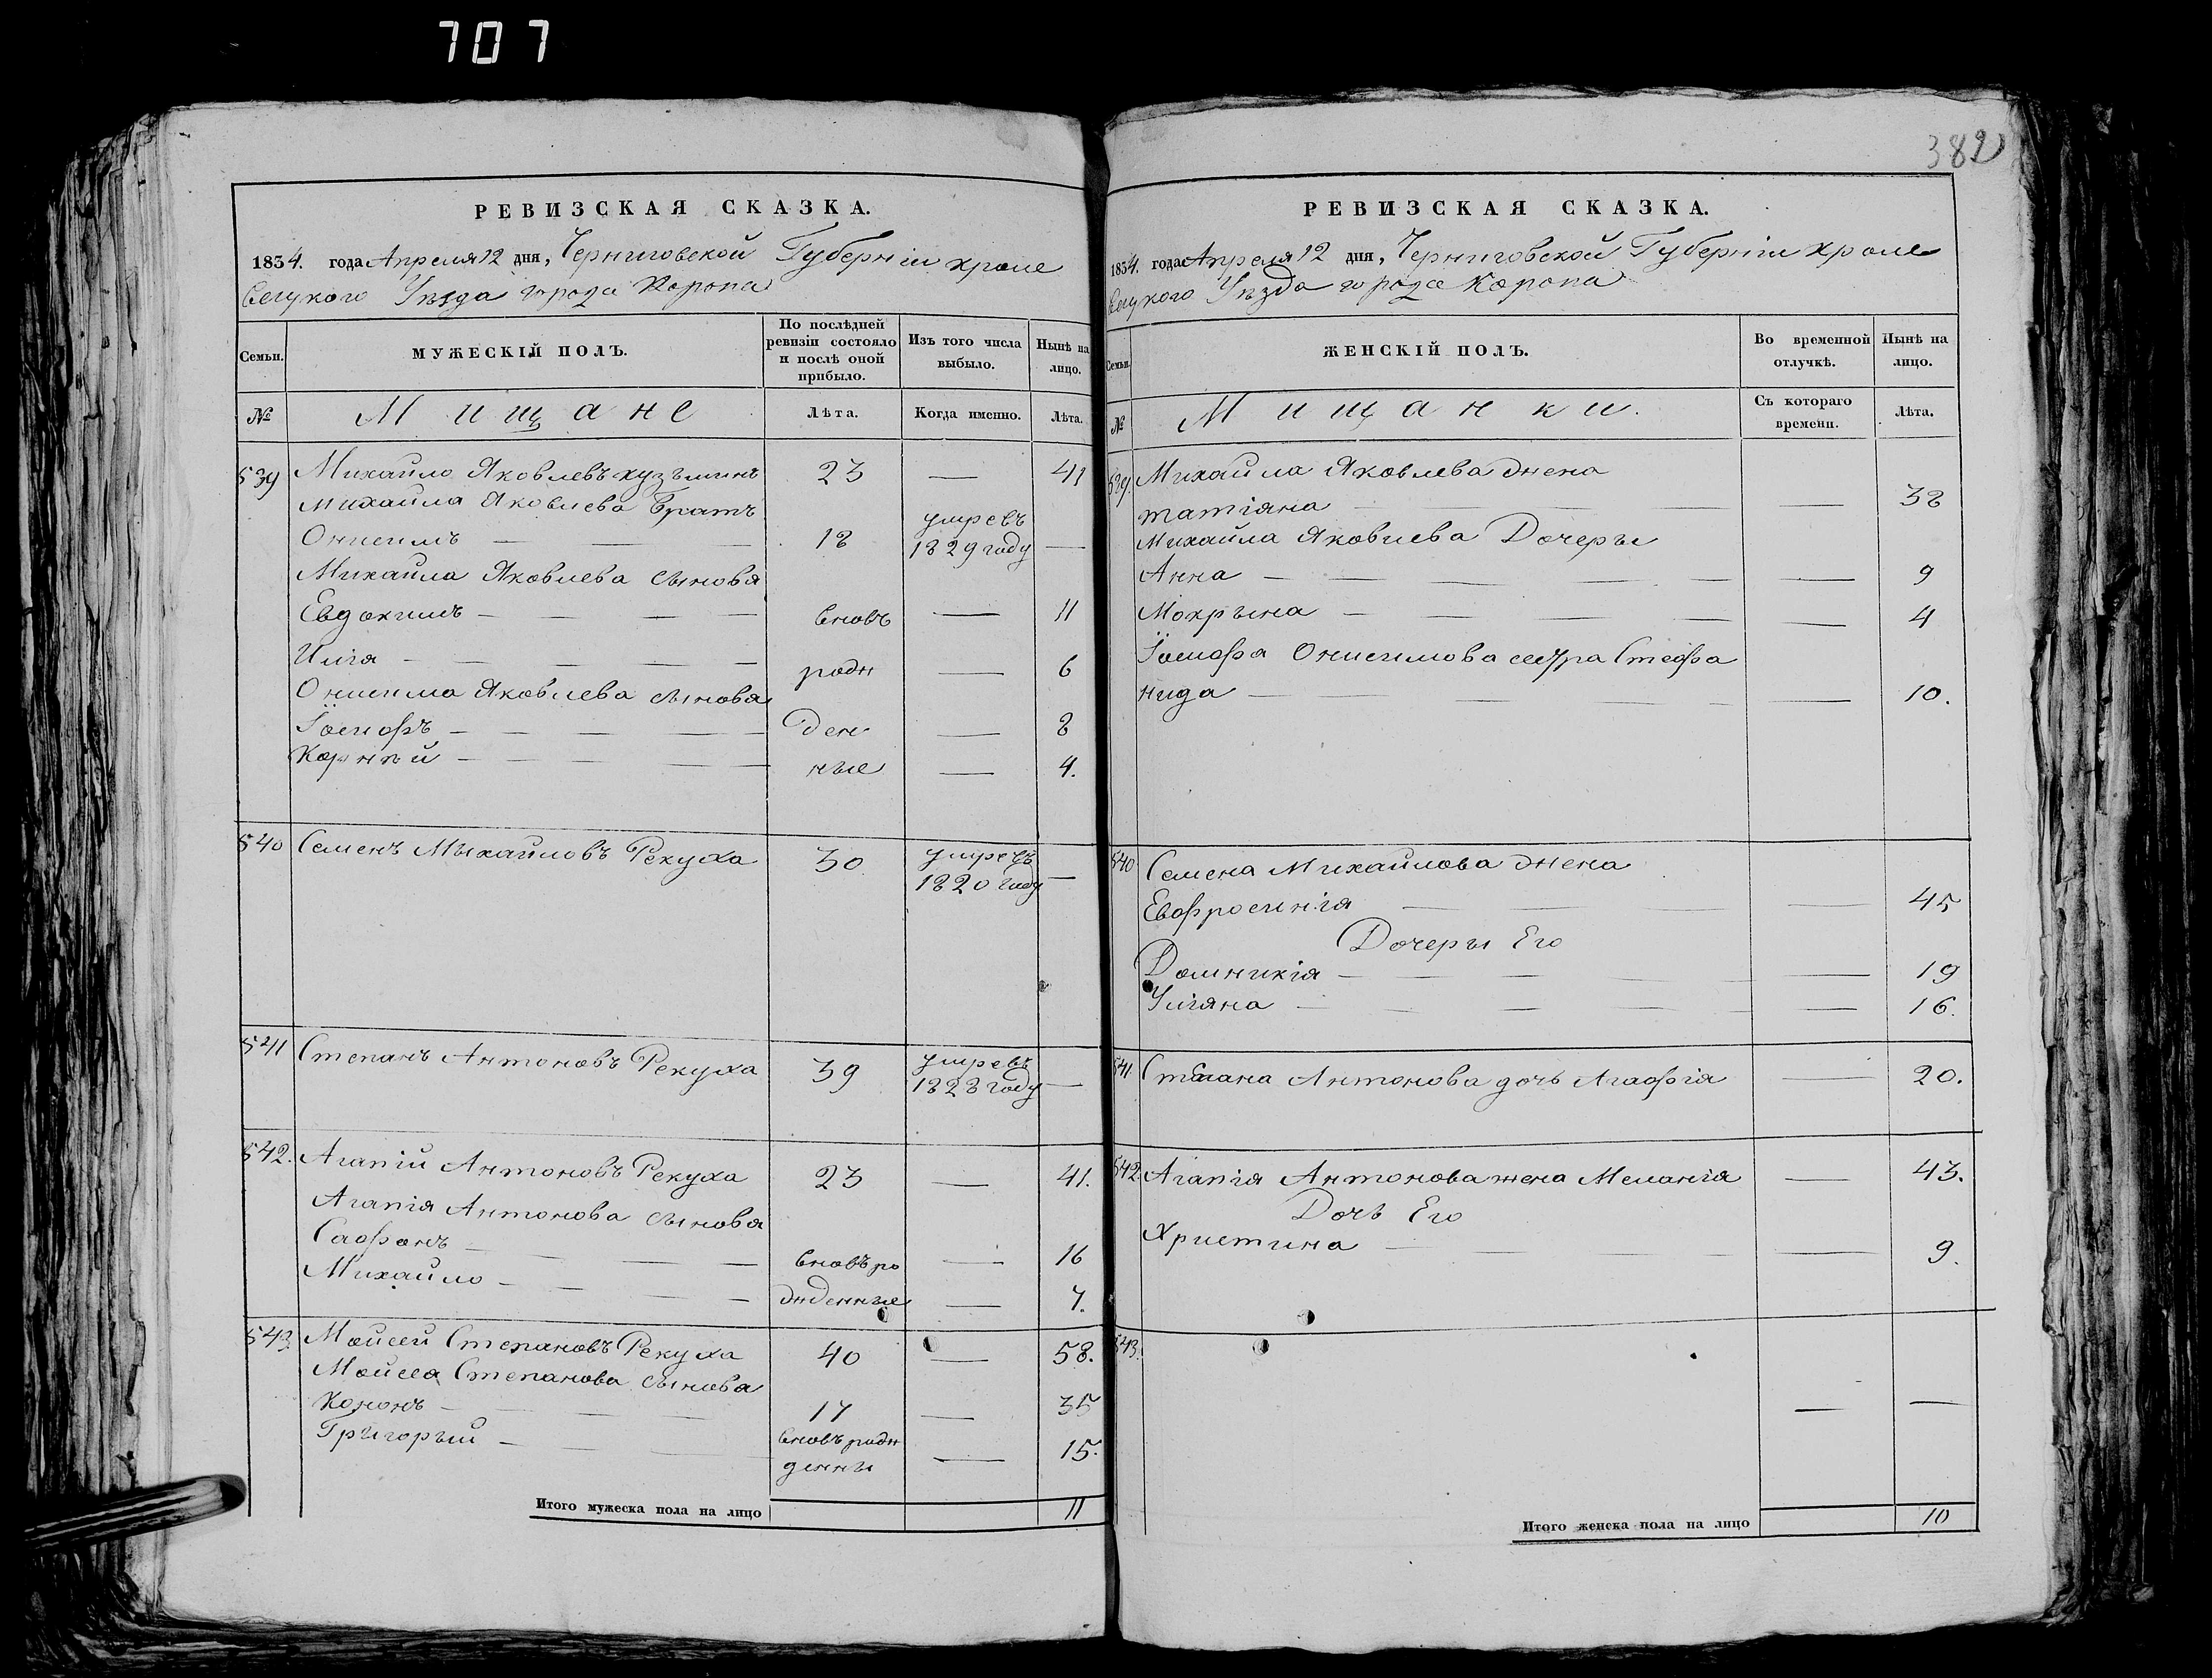 707
РЕВИЗСКАЯ СКАЗКА.
1834. года Апреля 12 дня, Черниговской Губерніи кроле
вецкого Уѣзда города Коропа
Семьи.
МУЖЕСКІЙ ПОЛЪ.
По послѣдней ревизіи состояло и послѣ оной прибыло.
Изъ того числа выбыло.
Нынѣ на лицо.
№
Мищане
Лѣта.
Когда именно.
Лѣта.
539 Михайло Яковлевъ кузъминъ 23 — 41
Михайла Яковлева Братъ
Онисимъ — — — 18 умревъ 1829 году —
Михайла Яковлева сыновя
Евдокимъ — — — вновъ — 11
Илія — — — — рож — 6
Онисима Яковлева сыновя
Іосифъ — — — — — ден — 8
Корнѣй — — — — — ные — 4.
540 Семенъ Михайловъ Рекуха 30 умревъ 1820 году —
541 Степанъ Антоновъ Рекуха 39 умревъ 1828 году —
542. Агапій Антоновъ Рекуха 23 — 41.
Агапія Антонова сыновя
Сафонъ — — — — вновъ ро — 16
Михайло — — — — жденные — 7.
543. Мойсей Степановъ Рекуха 40 — 58.
Мойсея Степанова сынова
Кононъ — — — 17 — 35
Григорый — — — вновъ рож
денны — 15.
Итого мужеска пола на лицо 11
382
РЕВИЗСКАЯ СКАЗКА.
1834. года Апреля 12 дня, Черниговской Губерніи кроле
вецкого Уѣзда города Коропа
Семьи.
ЖЕНСКІЙ ПОЛЪ.
Во временной отлучкѣ.
Нынѣ на лицо.
№
Мищанки.
Съ котораго времени.
Лѣта.
539. Михайла Яковлева жена
татіяна — — — — 38
Михайла Яковлева Дочеры
Анна — — — — — 9
Мокрына — — — — 4
Іосифа Онисимова сестра Стефа
нида — — — — — 10.
540 Семена Михайлова жена
Евфросинія — — — — 45
Дочеры Его
Домникія — — — — 19
Уліяна — — — — — 16.
541. Степана Антонова дочь Агафія — 20.
542. Агапія Антонова жена Меланія — 43.
Дочь Его
Христина — — — — 9.
543. — —
Итого женска пола на лицо 10